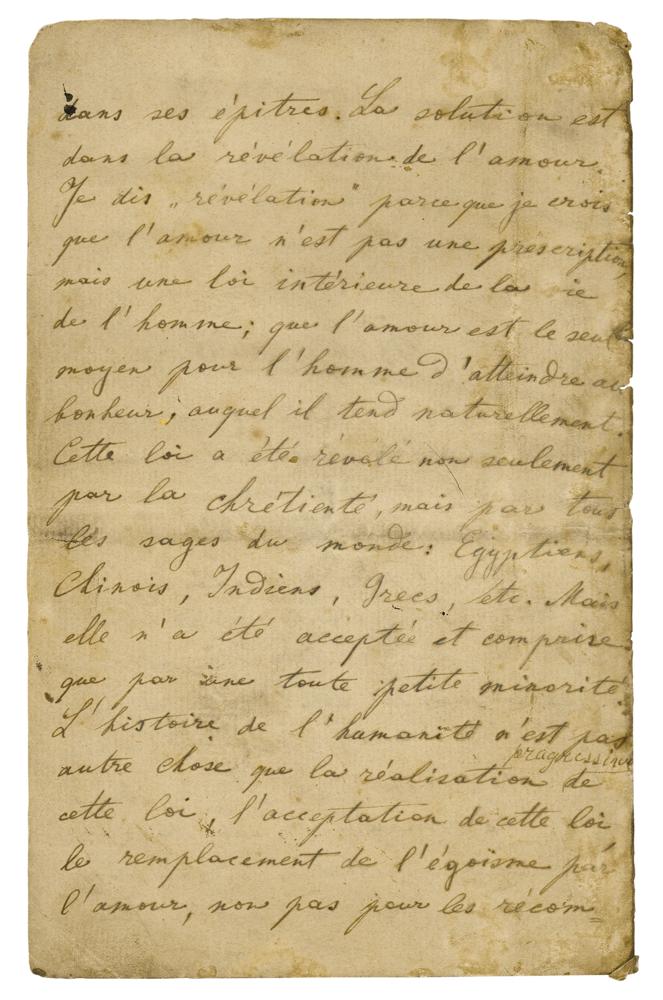 dans ses épitres. La solution est
dans la révélation de l'amour.
Je dis „révélation" parceque je crois
que l'amour n'est pas une prescription,
mais une loi intérieure de la ie
de l'homme; que l'amour est le seul
moyen pour l'homme d'atteindre au
bonheur, auquel il tend naturellement.
Cette loi a été révélé non seulement
par la chrétienté, mais par tous
les sages du monde: Egyptiens,
Chinois, Indiens, Grecs, etc. Mais
elle n'a été acceptée et comprise
que par une toute petite minorité.
L'histoire de l'humanité n'est pas
progressive
autre chose que la réalisation de
cette loi, l'acceptation de cette loi
le remplacement de l'égoïsme par
l'amour, non pas pour les récom=